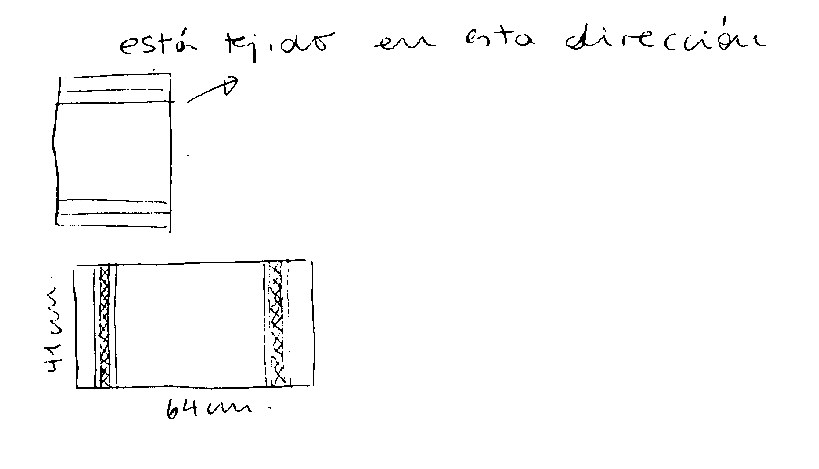 está tejido en esta dirección
41 cm.
64 cm.